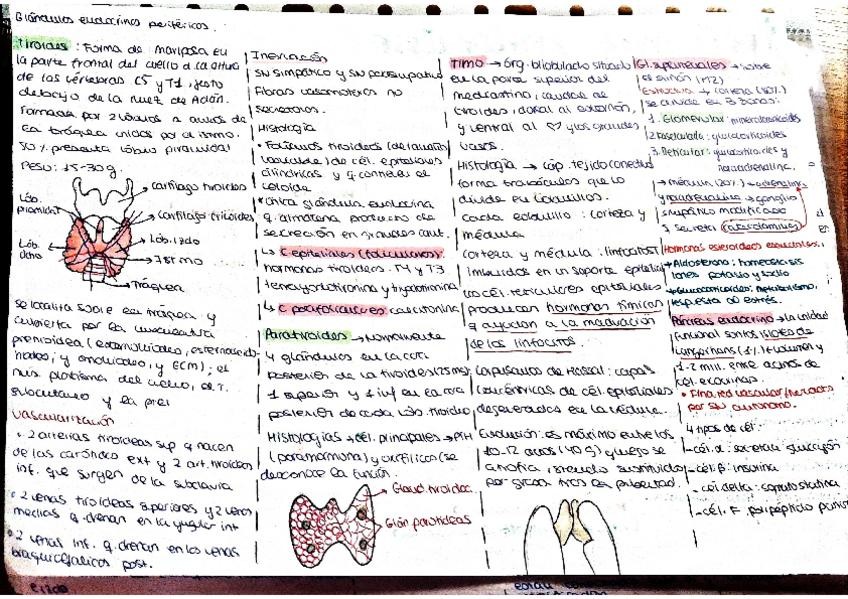 Glándulas endocrinas periféricas.
Tiroides: Forma de mariposa en
la parte frontal del cuello a la altura
de las vértebras C5 y T1, justo
debajo de la nuez de Adán.
Formada por 2 lóbulos a ambos de
la tráquea unidos por el istmo.
50% presenta lóbulo piramidal
Peso: 15-30g.
cartílago tiroides
Lób. piramidal
cartílago tiroides
Lób. izdo
Lób. dcho
Istmo
Tráquea
se localiza sobre la tráquea y
cubierta por la musculatura
pretiroidea (esternotiroideo, esternocleido
hioideo, y omohioideo, y ECM); el
mús. platisma del cuello, el t.
subcutáneo y la piel
Vascularización
• 2 arterias tiroideas sup q nacen
de las carótida ext y 2 art. tiroideas
inf. que surgen de la subclavia
• 2 venas tiroideas superiores y 2 venas
medias q drenan en la yugular int
• 2 venas inf. q drenan en las venas
braquiocefálicas post.
Inervación
SN simpático y SN parasimpático
Fibras vasomotoras no
secretoras.
Histología
• Folículos tiroideos
de cél. epiteliales
cilíndricas y q contienen el
coloide
• única glándula endocrina
q almacena producto de
secreción en grandes cant.
↳ C epiteliales (foliculares):
hormonas tiroideas. T4 y T3
tetrayodotironina y triyodotironina
↳ C parafoliculares: calcitonina
Paratiroides → Normalmente
4 glándulas en la cara
posterior de la tiroides
1 superior y 1 inf en la cara
posterior de cada lób. tiroideo
Histología → cél. principales → PTH
(parathormona) y oxifílicas (se
desconoce la función.
Gland tiroidea
Glán paratiroideas
Timo → órg. bilobulado situado
en la parte superior del
mediastino, caudal de
tiroides, dorsal al esternón,
y ventral al ♡ y los grandes
vasos.
Histología → cáp. tejido conectivo
forma trabéculas que lo
divide en lobulillos.
Cada lobulillo: corteza y
médula
corteza y médula: linfocitos T
imbuidos en un soporte epitelial
cél. reticulares epiteliales
producen hormonas tímicas
q ayudan a la maduración
de los linfocitos.
Corpúsculo de Hassal: capas
concéntricas de cél. epiteliales
degeneradas en la médula.
Evolución: es máximo entre los
10-12 años (40g) y luego se
atrofia, siendo sustituido
por grasa tras la pubertad.
Gl. suprarrenales → sobre
el riñón (x2)
Estructura → corteza (80%)
se divide en 3 zonas:
1. Glomerular: mineralocorticoides
2. Fasciculada: glucocorticoides
3. Reticular: glucocorticoides y
→ médula (20%) → adrenalina
y noradrenalina → ganglio
simpático modificado
y secreta catecolaminas
Hormonas esteroideas
→ Aldosterona: homeostasis
iones potasio y sodio
→ Glucocorticoides: metabolismo,
respuesta al estrés.
Páncreas endocrino → la unidad
funcional son los islotes de
Langerhans
1-2 mill. entre acinos de
cél. exocrinas.
• Fina red vascular
por SN autónomo.
4 tipos de cél:
- cél. α: secretan glucagón
- cél. β: insulina
- cel delta: somatostatina
- cél. F polipéptido